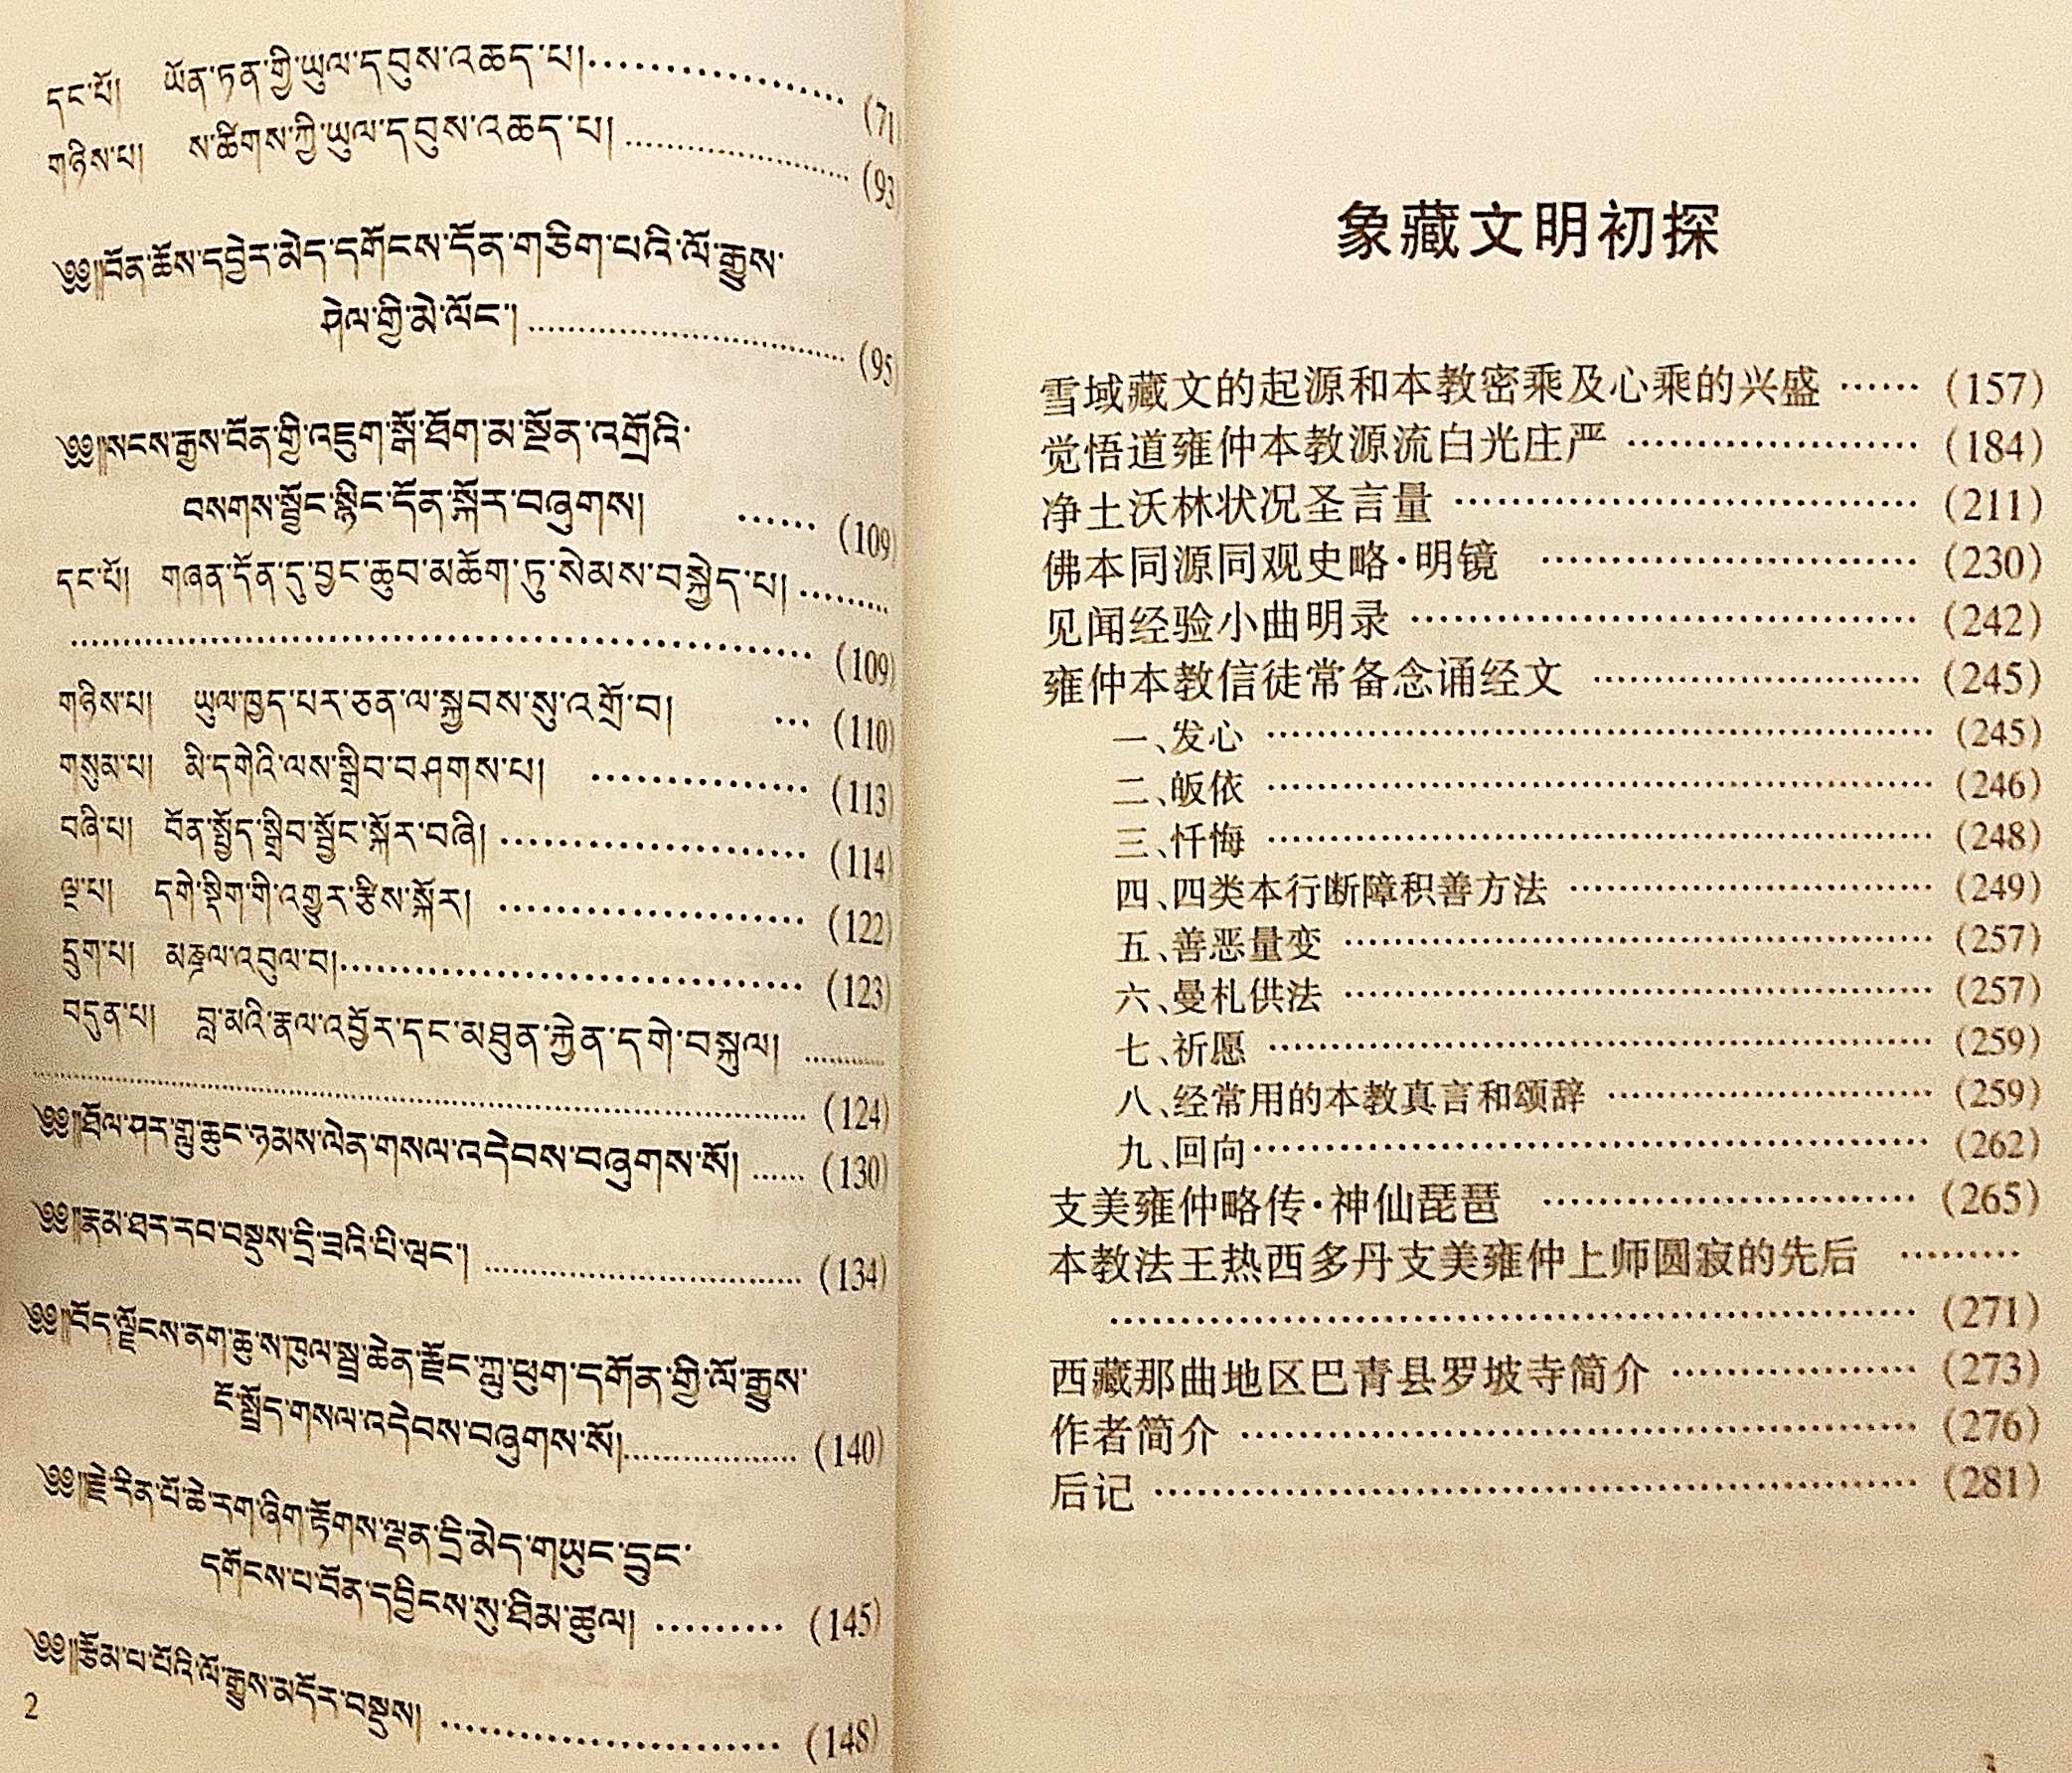 དང་པོ། ཡོན་ཏན་གྱི་ཡུལ་དབུས་འཆད་པ།……………… (71)
གཉིས་པ། ས་ཚིགས་ཀྱི་ཡུལ་དབུས་འཆད་པ། ……………… (93)
༄༅༎བོན་ཆོས་དབྱེར་མེད་དགོངས་དོན་གཅིག་པའི་ལོ་རྒྱུས་
ཤེལ་གྱི་མེ་ལོང་། ……………… (95)
༄༅༎སངས་རྒྱས་བོན་གྱི་འཇུག་སྒོ་ཐོག་མ་སྔོན་འགྲོའི་
བསགས་སྦྱོང་སྙིང་དོན་སྐོར་བཞུགས། …… (109)
དང་པོ། གཞན་དོན་དུ་བྱང་ཆུབ་མཆོག་ཏུ་སེམས་བསྐྱེད་པ། ………
……………………………… (109)
གཉིས་པ། ཡུལ་ཁྱད་པར་ཅན་ལ་སྐྱབས་སུ་འགྲོ་བ། … (110)
གསུམ་པ། མི་དགེའི་ལས་སྒྲིབ་བཤགས་པ། …………… (113)
བཞི་པ། བོན་སྤྱོད་སྒྲིབ་སྦྱོང་སྐོར་བཞི། ………………… (114)
ལྔ་པ། དགེ་སྡིག་གི་འགྱུར་རྩིས་སྐོར། ………………… (122)
དྲུག་པ། མཎྜལ་འབུལ་བ།………………………… (123)
བདུན་པ། བླ་མའི་རྣལ་འབྱོར་དང་མཐུན་རྐྱེན་དགེ་བསྐུལ། ………
……………………………… (124)
༄༅༎ཐོལ་ཤར་གླུ་ཆུང་ཉམས་ལེན་གསལ་འདེབས་བཞུགས་སོ། …… (130)
༄༅༎རྣམ་ཐར་རབ་བསྡུས་དྲི་ཟའི་པི་ཝང་། ………………… (134)
༄༅༎བོད་ལྗོངས་ནག་ཆུ་ས་ཁུལ་སྦྲ་ཆེན་རྫོང་ཀླུ་ཕུག་དགོན་གྱི་ལོ་རྒྱུས་
ངོ་སྤྲོད་གསལ་འདེབས་བཞུགས་སོ།……………… (140)
༄༅༎རྗེ་རིན་པོ་ཆེ་རག་ཞིག་རྟོགས་ལྡན་དྲི་མེད་གཡུང་དྲུང་
དགོངས་པ་བོན་དབྱིངས་སུ་ཐིམ་ཚུལ། ……… (145)
༄༅༎རྩོམ་པ་པོའི་ལོ་རྒྱུས་མདོར་བསྡུས། …………………… (148)
2
象藏文明初探
雪域藏文的起源和本教密乘及心乘的兴盛 …… (157)
觉悟道雍仲本教源流白光庄严 ………………… (184)
净土沃林状况圣言量 ………………………… (211)
佛本同源同观史略·明镜 …………………… (230)
见闻经验小曲明录 …………………………… (242)
雍仲本教信徒常备念诵经文 ………………… (245)
一、发心 ……………………………………… (245)
二、皈依 ……………………………………… (246)
三、忏悔 ……………………………………… (248)
四、四类本行断障积善方法 ………………… (249)
五、善恶量变 ………………………………… (257)
六、曼札供法 ………………………………… (257)
七、祈愿 ……………………………………… (259)
八、经常用的本教真言和颂辞 ……………… (259)
九、回向……………………………………… (262)
支美雍仲略传·神仙琵琶 …………………… (265)
本教法王热西多丹支美雍仲上师圆寂的先后 ………
……………………………………………… (271)
西藏那曲地区巴青县罗坡寺简介 …………… (273)
作者简介 ……………………………………… (276)
后记 …………………………………………… (281)